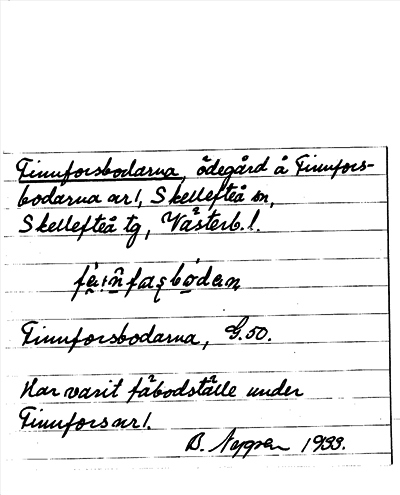 Finnforsbodarna, ödegård å Finnfors-
bodarna nr 1, Skellefteå sn,
Skellefteå tg, Västerb. l.
Finnforsbodarna, G.50.
Har varit fäbodställe under
Finnfors nr 1.
B. 1933.